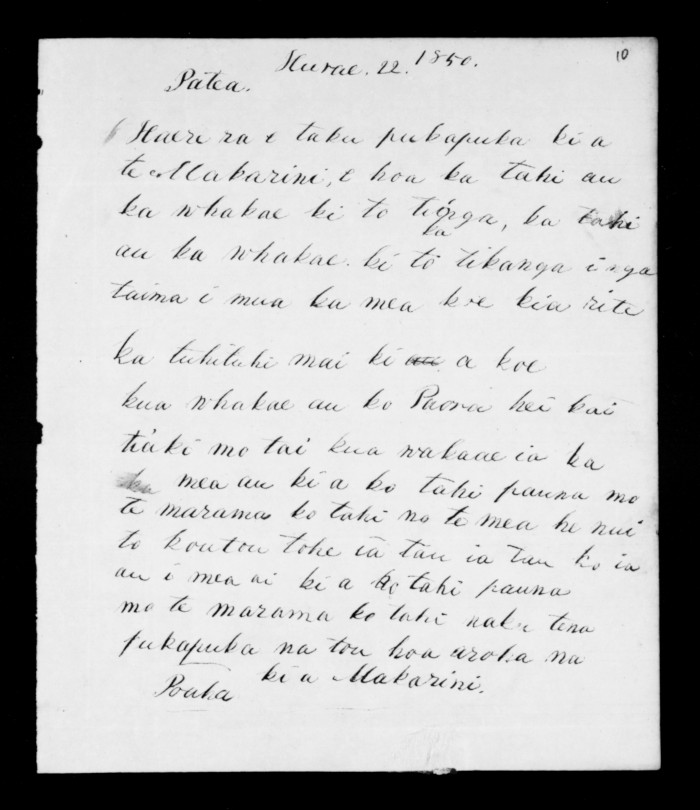 10
Hurae. 22. 1850.
Patea.
Haere ra e taku pukapuka ki a
te Makarini, e hoa ka tahi au
ka whakae ki to tionga, ka tahi
ka
au ka whakae. ki to tikanga i nga
taima i mua ka mea koe kia rite
ka tuhituhi mai ki au a koe
kua whakae au ko Paora hei kai
tiaki mo tai kua wakaae ia ka
ka mea au ki a ko tahi pauna mo
te marama ko tahi no te mea he nui
to koutou tohe ia tau ia tau ko ia
au i mea ai ki a ko tahi pauna
mo te marama ko tahi naku tena
pukapuka na tou hoa aroha na
ki a Makarini.